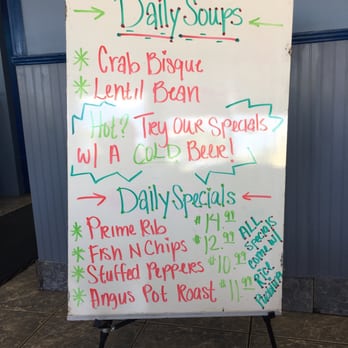 → Daily Soups ←
* Crab Bisque
* Lentil Bean
Hot? Try Our Specials
w/ A COLD Beer!
→ Daily Specials ←
* Prime Rib $14.99
* Fish N Chips $12.99
* Stuffed Peppers $10.99
* Angus Pot Roast $11.99
ALL
Specials
come w/
Rice